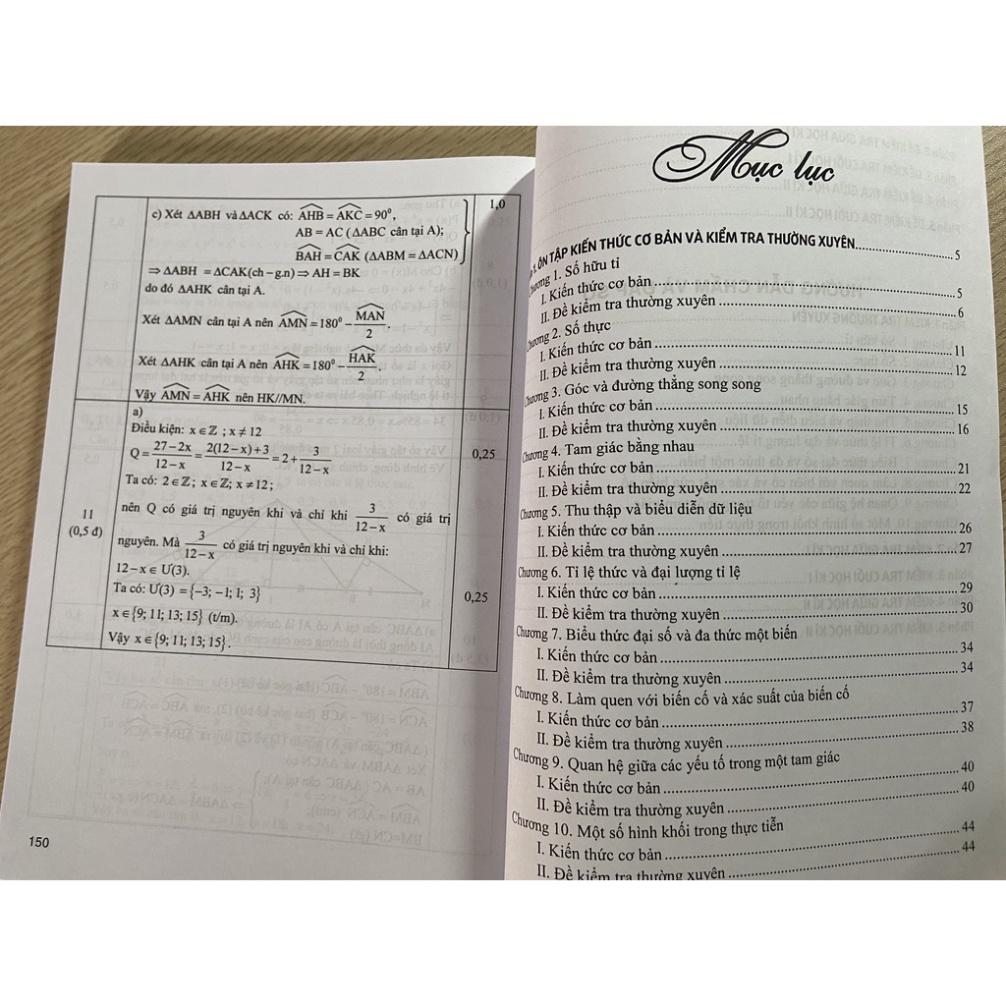 1,0
c) Xét ΔABH và ΔACK có: AHB = AKC = 90⁰,
AB = AC ( ΔABC cân tại A);
BAH = CAK (ΔABM = ΔACN)
⇒ ΔABH = ΔCAK(ch – g.n) ⇒ AH = BK
do đó ΔAHK cân tại A.
Xét ΔAMN cân tại A nên AMN = 180⁰ – MAN/2.
Xét ΔAHK cân tại A nên AHK = 180⁰ – HAK/2.
Vậy AMN = AHK nên HK//MN.
11
(0,5 đ)
a)
Điều kiện: x ∈ ℤ ; x ≠ 12
Q = (27 – 2x)/(12 – x) = (2(12 – x) + 3)/(12 – x) = 2 + 3/(12 – x)
0,25
Ta có: 2 ∈ ℤ ; x ∈ ℤ; x ≠ 12 ;
nên Q có giá trị nguyên khi và chỉ khi 3/(12 – x) có giá trị
nguyên. Mà 3/(12 – x) có giá trị nguyên khi và chỉ khi:
12 – x ∈ Ư(3).
Ta có: Ư(3) = {–3; –1; 1; 3}
0,25
x ∈ {9; 11; 13; 15} (t/m).
Vậy x ∈ {9; 11; 13; 15} .
150
Mục lục
ÔN TẬP KIẾN THỨC CƠ BẢN VÀ KIỂM TRA THƯỜNG XUYÊN 5
Chương 1. Số hữu tỉ
I. Kiến thức cơ bản 5
II. Đề kiểm tra thường xuyên 6
Chương 2. Số thực
I. Kiến thức cơ bản 11
II. Đề kiểm tra thường xuyên 12
Chương 3. Góc và đường thẳng song song
I. Kiến thức cơ bản 15
II. Đề kiểm tra thường xuyên 16
Chương 4. Tam giác bằng nhau
I. Kiến thức cơ bản 21
II. Đề kiểm tra thường xuyên 22
Chương 5. Thu thập và biểu diễn dữ liệu
I. Kiến thức cơ bản 26
II. Đề kiểm tra thường xuyên 27
Chương 6. Tỉ lệ thức và đại lượng tỉ lệ
I. Kiến thức cơ bản 29
II. Đề kiểm tra thường xuyên 30
Chương 7. Biểu thức đại số và đa thức một biến
I. Kiến thức cơ bản 34
II. Đề kiểm tra thường xuyên 34
Chương 8. Làm quen với biến cố và xác suất của biến cố
I. Kiến thức cơ bản 37
II. Đề kiểm tra thường xuyên 38
Chương 9. Quan hệ giữa các yếu tố trong một tam giác
I. Kiến thức cơ bản 40
II. Đề kiểm tra thường xuyên 40
Chương 10. Một số hình khối trong thực tiễn
I. Kiến thức cơ bản 44
II. Đề kiểm tra thường xuyên 44